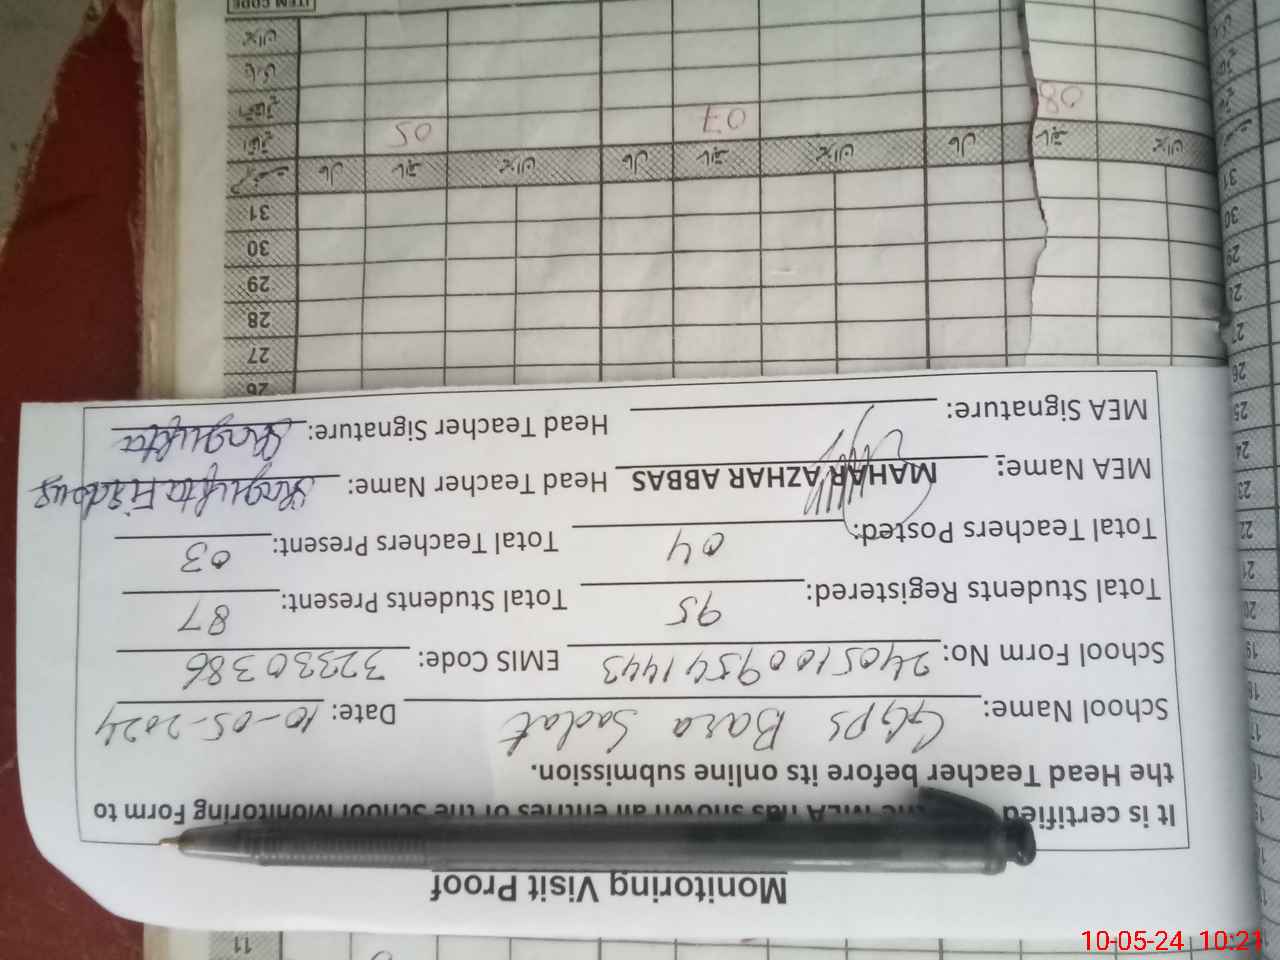 Monitoring Visit Proof
It is certified the MEA has shown all entries of the School Monitoring Form to
the Head Teacher before its online submission.
School Name: GGPS Bara Sadat Date: 10-05-2024
School Form No: 24051009541443 EMIS Code: 32330386
Total Students Registered: 95 Total Students Present: 87
Total Teachers Posted: 04 Total Teachers Present: 03
MEA Name: MAHAR AZHAR ABBAS Head Teacher Name: Shagufta Firdous
MEA Signature: Head Teacher Signature: Shagufta
26
27
28
29
30
31
08 07 05
ITEM CODE
11
10-05-24 10:21